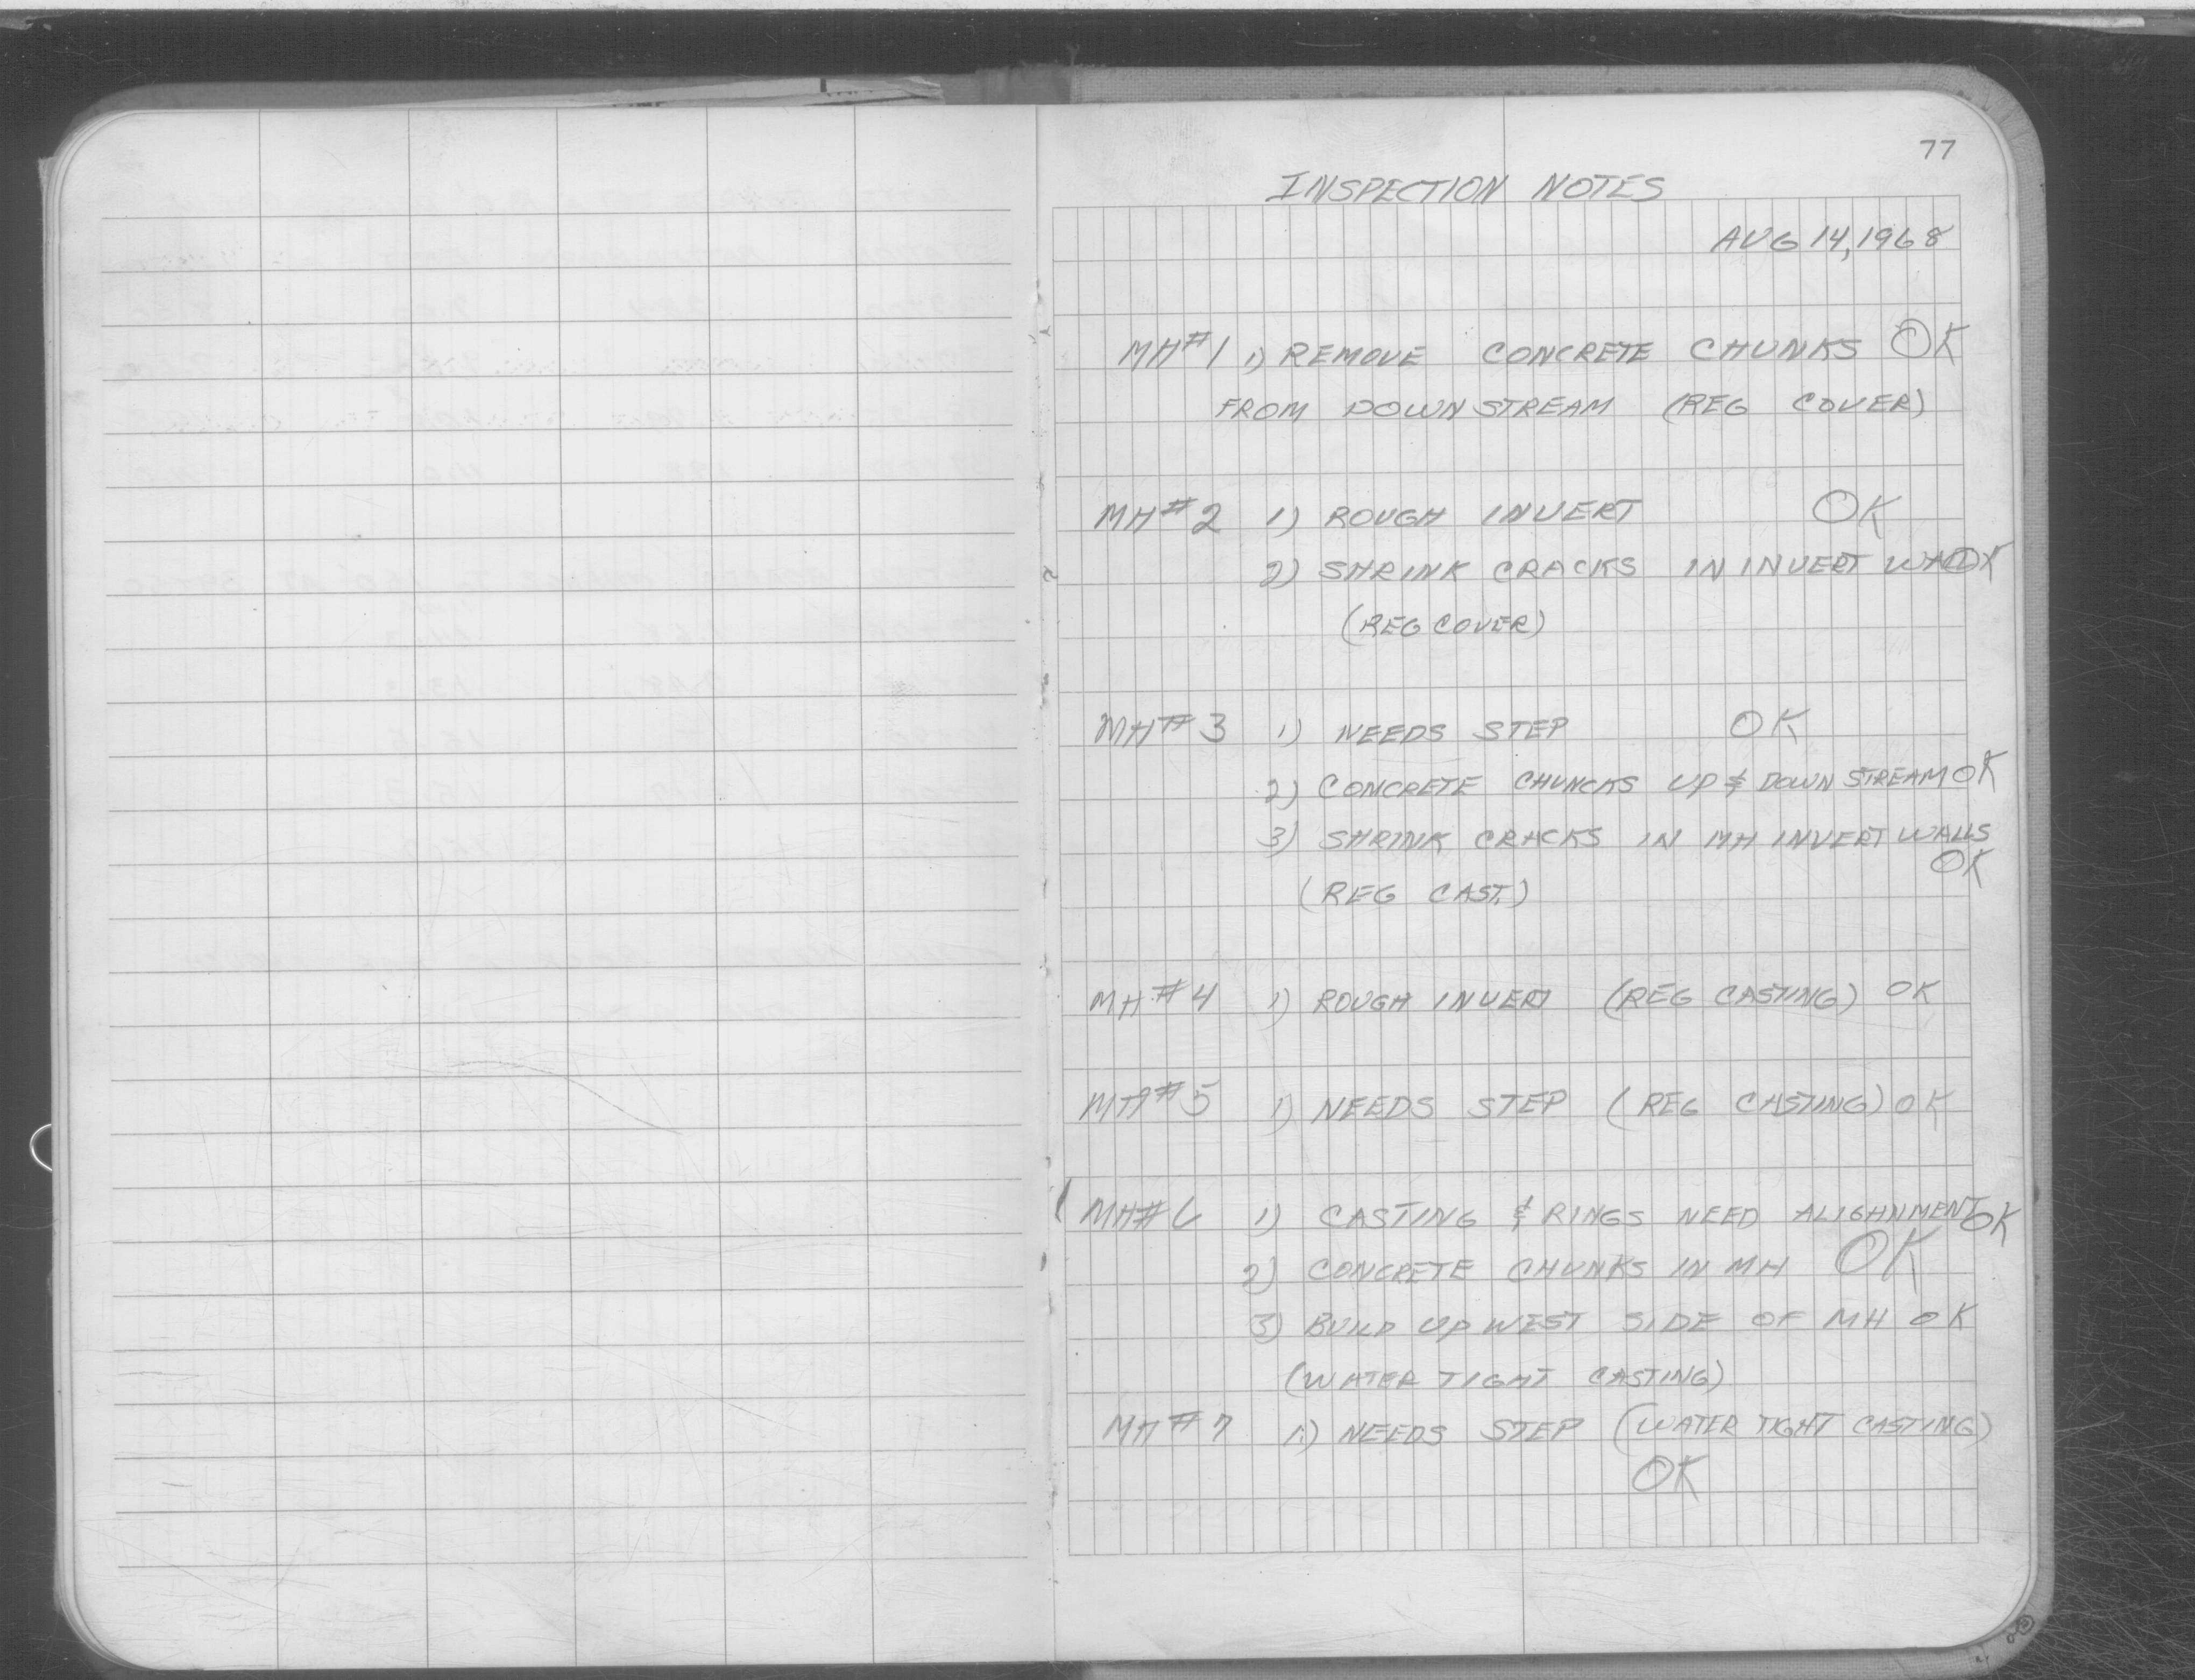 77
INSPECTION NOTES
AUG 14, 1968
MH#1 1) REMOVE CONCRETE CHUNKS OK
FROM DOWN STREAM (REG COVER)
MH#2 1) ROUGH INVERT OK
2) SHRINK CRACKS IN INVERT WALL OK
(REG COVER)
MH#3 1) NEEDS STEP OK
2) CONCRETE CHUNCKS UP & DOWN STREAM OK
3) SHRINK CRACKS IN MH INVERT WALLS
OK
(REG CAST.)
MH#4 1) ROUGH INVERT (REG CASTING) OK
MH#5 1) NEEDS STEP (REG CASTING) OK
MH#6 1) CASTING & RINGS NEED ALIGHNMENT OK
2) CONCRETE CHUNKS IN MH OK
3) BUILD UP WEST SIDE OF MH OK
(WATER TIGHT CASTING)
MH#7 1) NEEDS STEP (WATER TIGHT CASTING)
OK